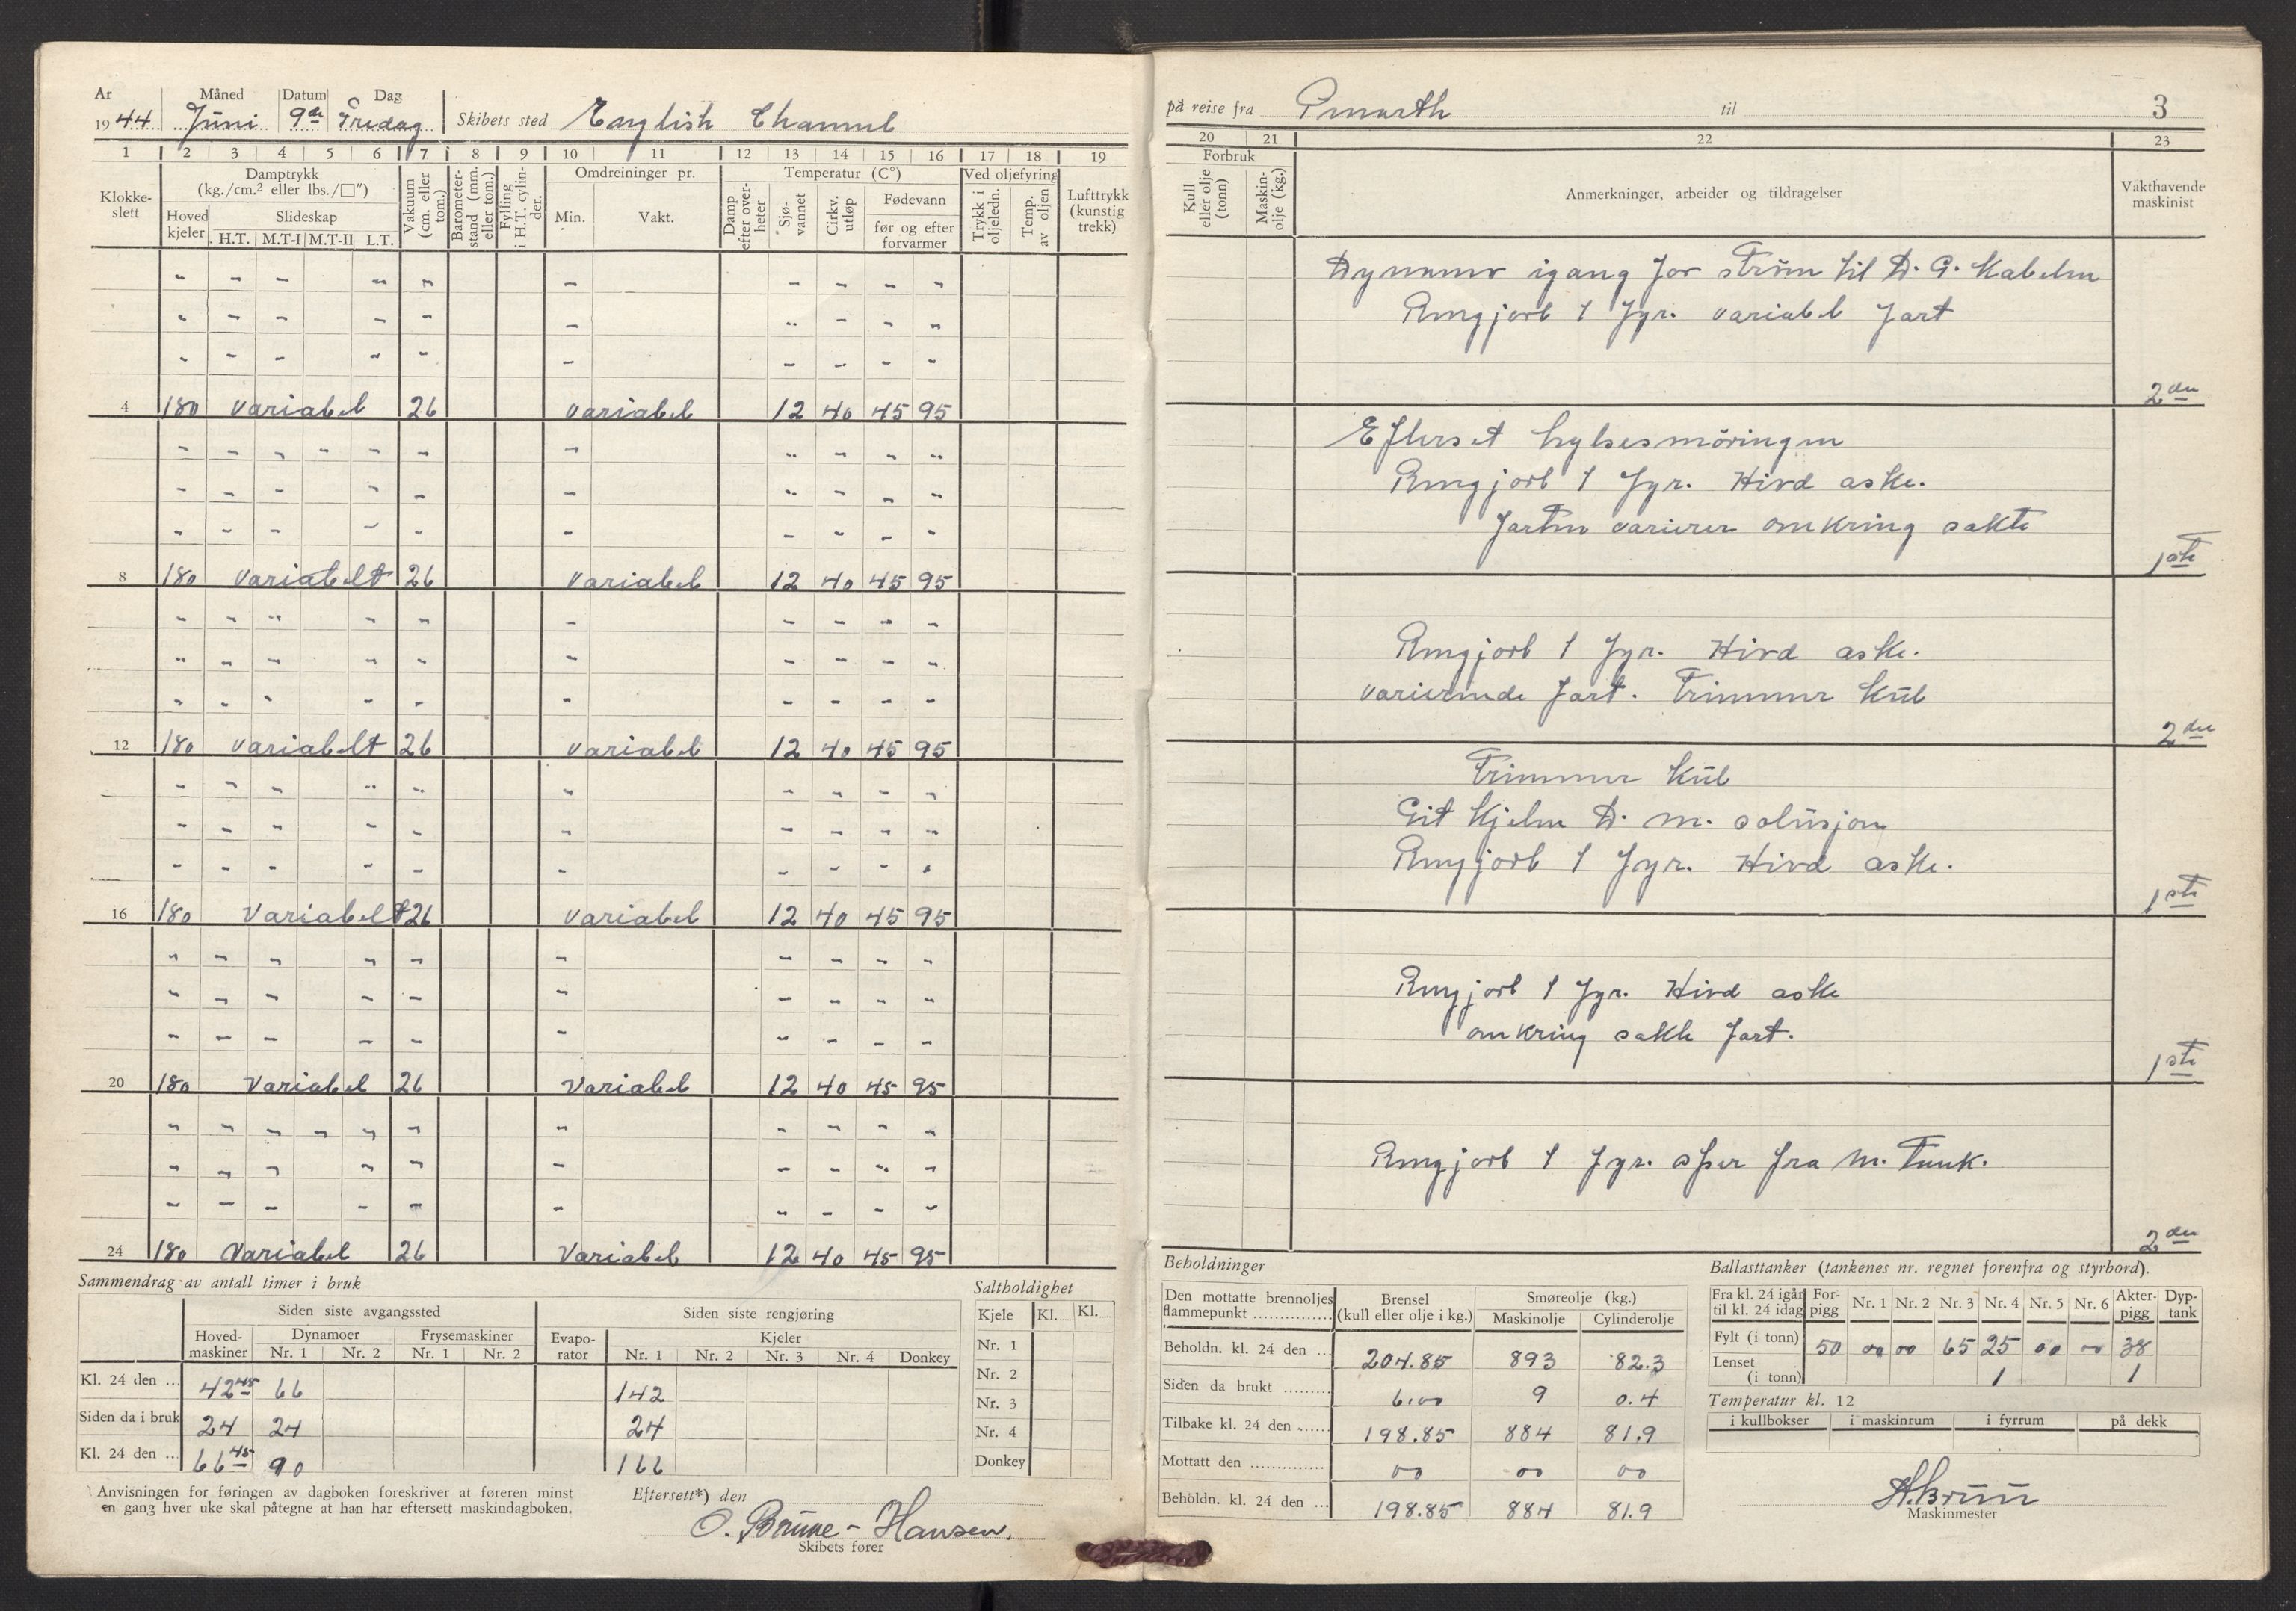 År Måned Datum Dag
1944 Juni 9de Fredag Skibets sted English Channel
1 2 3 4 5 6 7 8 9 10 11 12 13 14 15 16 17 18 19
Klokke-slett
Damptrykk (kg./cm.² eller lbs./□")
Hoved kjeler
Slideskap
H.T. M.T-I M.T-II L.T.
Vakuum (cm. eller tom.)
Barometer-stand (mm. eller tom.)
Fylling i H.T. cylin-der.
Omdreininger pr.
Min. Vakt.
Temperatur (C°)
Damp efter over-heter
Sjø-vannet
Cirkv. utløp
Fødevann
før og efter forvarmer
Ved oljefyring
Trykk i oljeledn.
Temp. av oljen
Lufttrykk (kunstig trekk)
4 180 variabel 26 variabel 12 40 45 95
8 180 variabelt 26 variabel 12 40 45 95
12 180 variabelt 26 variabel 12 40 45 95
16 180 variabelt 26 variabel 12 40 45 95
20 180 variabel 26 variabel 12 40 45 95
24 180 variabel 26 variabel 12 40 45 95
Sammendrag av antall timer i bruk
Siden siste avgangssted Siden siste rengjøring
Hoved-maskiner Dynamoer Frysemaskiner Evapo-rator Kjeler
Nr. 1 Nr. 2 Nr. 1 Nr. 2 Nr. 1 Nr. 2 Nr. 3 Nr. 4 Donkey
Kl. 24 den ... 42 45 66 142
Siden da i bruk 24 24 24
Kl. 24 den ... 66 45 90 166
Saltholdighet
Kjele Kl. Kl.
Nr. 1
Nr. 2
Nr. 3
Nr. 4
Donkey
Anvisningen for føringen av dagboken foreskriver at føreren minst
en gang hver uke skal påtegne at han har eftersett maskindagboken.
Eftersett*) den
O. Brune-Hansen.
Skibets fører
på reise fra til 3
20 21 22 23
Forbruk
Kull eller olje (tonn)
Maskin-olje (kg.)
Anmerkninger, arbeider og tildragelser
Vakthavende maskinist
Dynamo igang for strøm til D. G. Kabelen
Rengjort 1 fyr. variabel fart
2den
Efterset hylsesmöringen
Rengjort 1 fyr. Hivd aske.
farten varierer omkring sakte
1ste
Rengjort 1 fyr. Hivd aske.
varierende fart. Trimmer kul
2den
Trimmer kul
Git kjelen D. M. solusjon
Rengjort 1 fyr. Hivd aske.
1ste
Rengjort 1 fyr. Hivd aske
omkring sakte fart.
1ste
Rengjort 1 fyr. fra M. Tank.
2den
Beholdninger
Den mottatte brennoljes flammepunkt ............... Brensel (kull eller olje i kg.) Smøreolje (kg.)
Maskinolje Cylinderolje
Beholdn. kl. 24 den ... 204.85 893 82.3
Siden da brukt ......... 6.00 9 0.4
Tilbake kl. 24 den ...... 198.85 884 81.9
Mottatt den .............. 00 00 00
Beholdn. kl. 24 den ... 198.85 884 81.9
Ballasttanker (tankenes nr. regnet forenfra og styrbord).
Fra kl. 24 igår til kl. 24 idag For-pigg Nr. 1 Nr. 2 Nr. 3 Nr. 4 Nr. 5 Nr. 6 Akter-pigg Dyp-tank
Fylt (i tonn) 50 00 00 65 25 00 00 38
Lenset (i tonn) 1 1
Temperatur kl. 12
i kullbokser i maskinrum i fyrrum på dekk
A. Bruu
Maskinmester